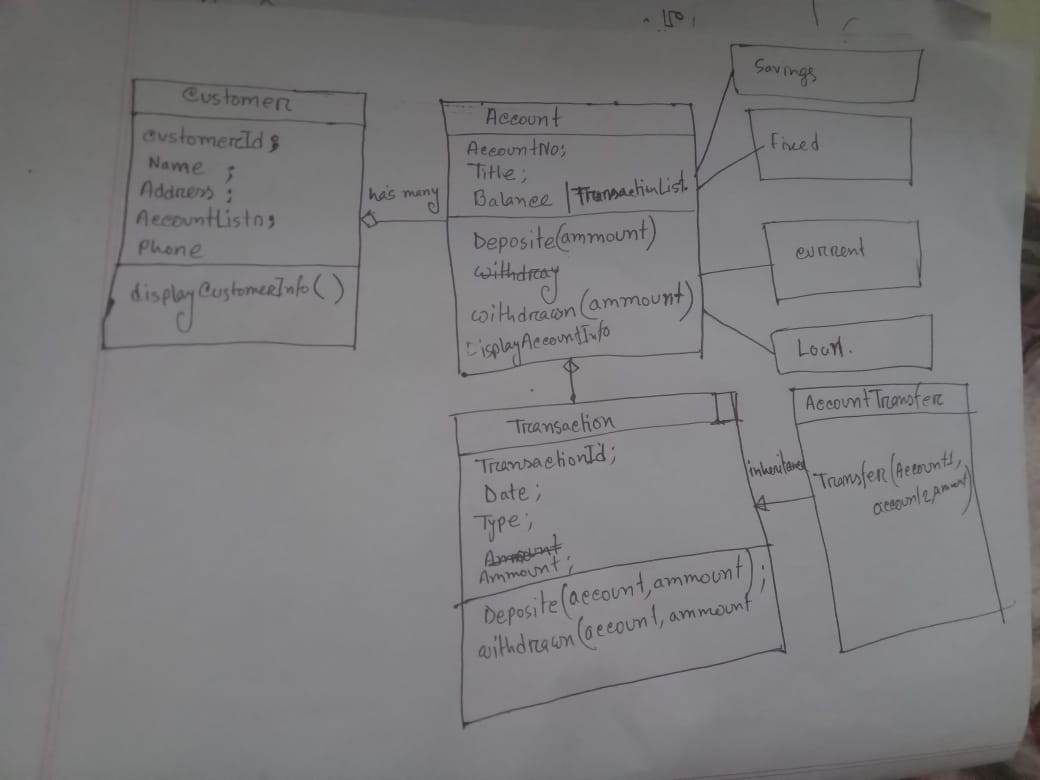 Customer
CustomerId;
Name ;
Address ;
AccountListn;
Phone
displayCustomerInfo()
has many
Account
AccountNo;
Title;
Balance | TransactionList
Deposite(ammount)
withdray
withdrawn(ammount)
DisplayAccountInfo
Savings
Fixed
current
Loan.
Transaction
TransactionId;
Date;
Type;
Ammount
Ammount;
Deposite(account, ammount);
withdrawn(account, ammount
inheritance
AccountTransfer
Transfer(Account1,
account2, Amount)